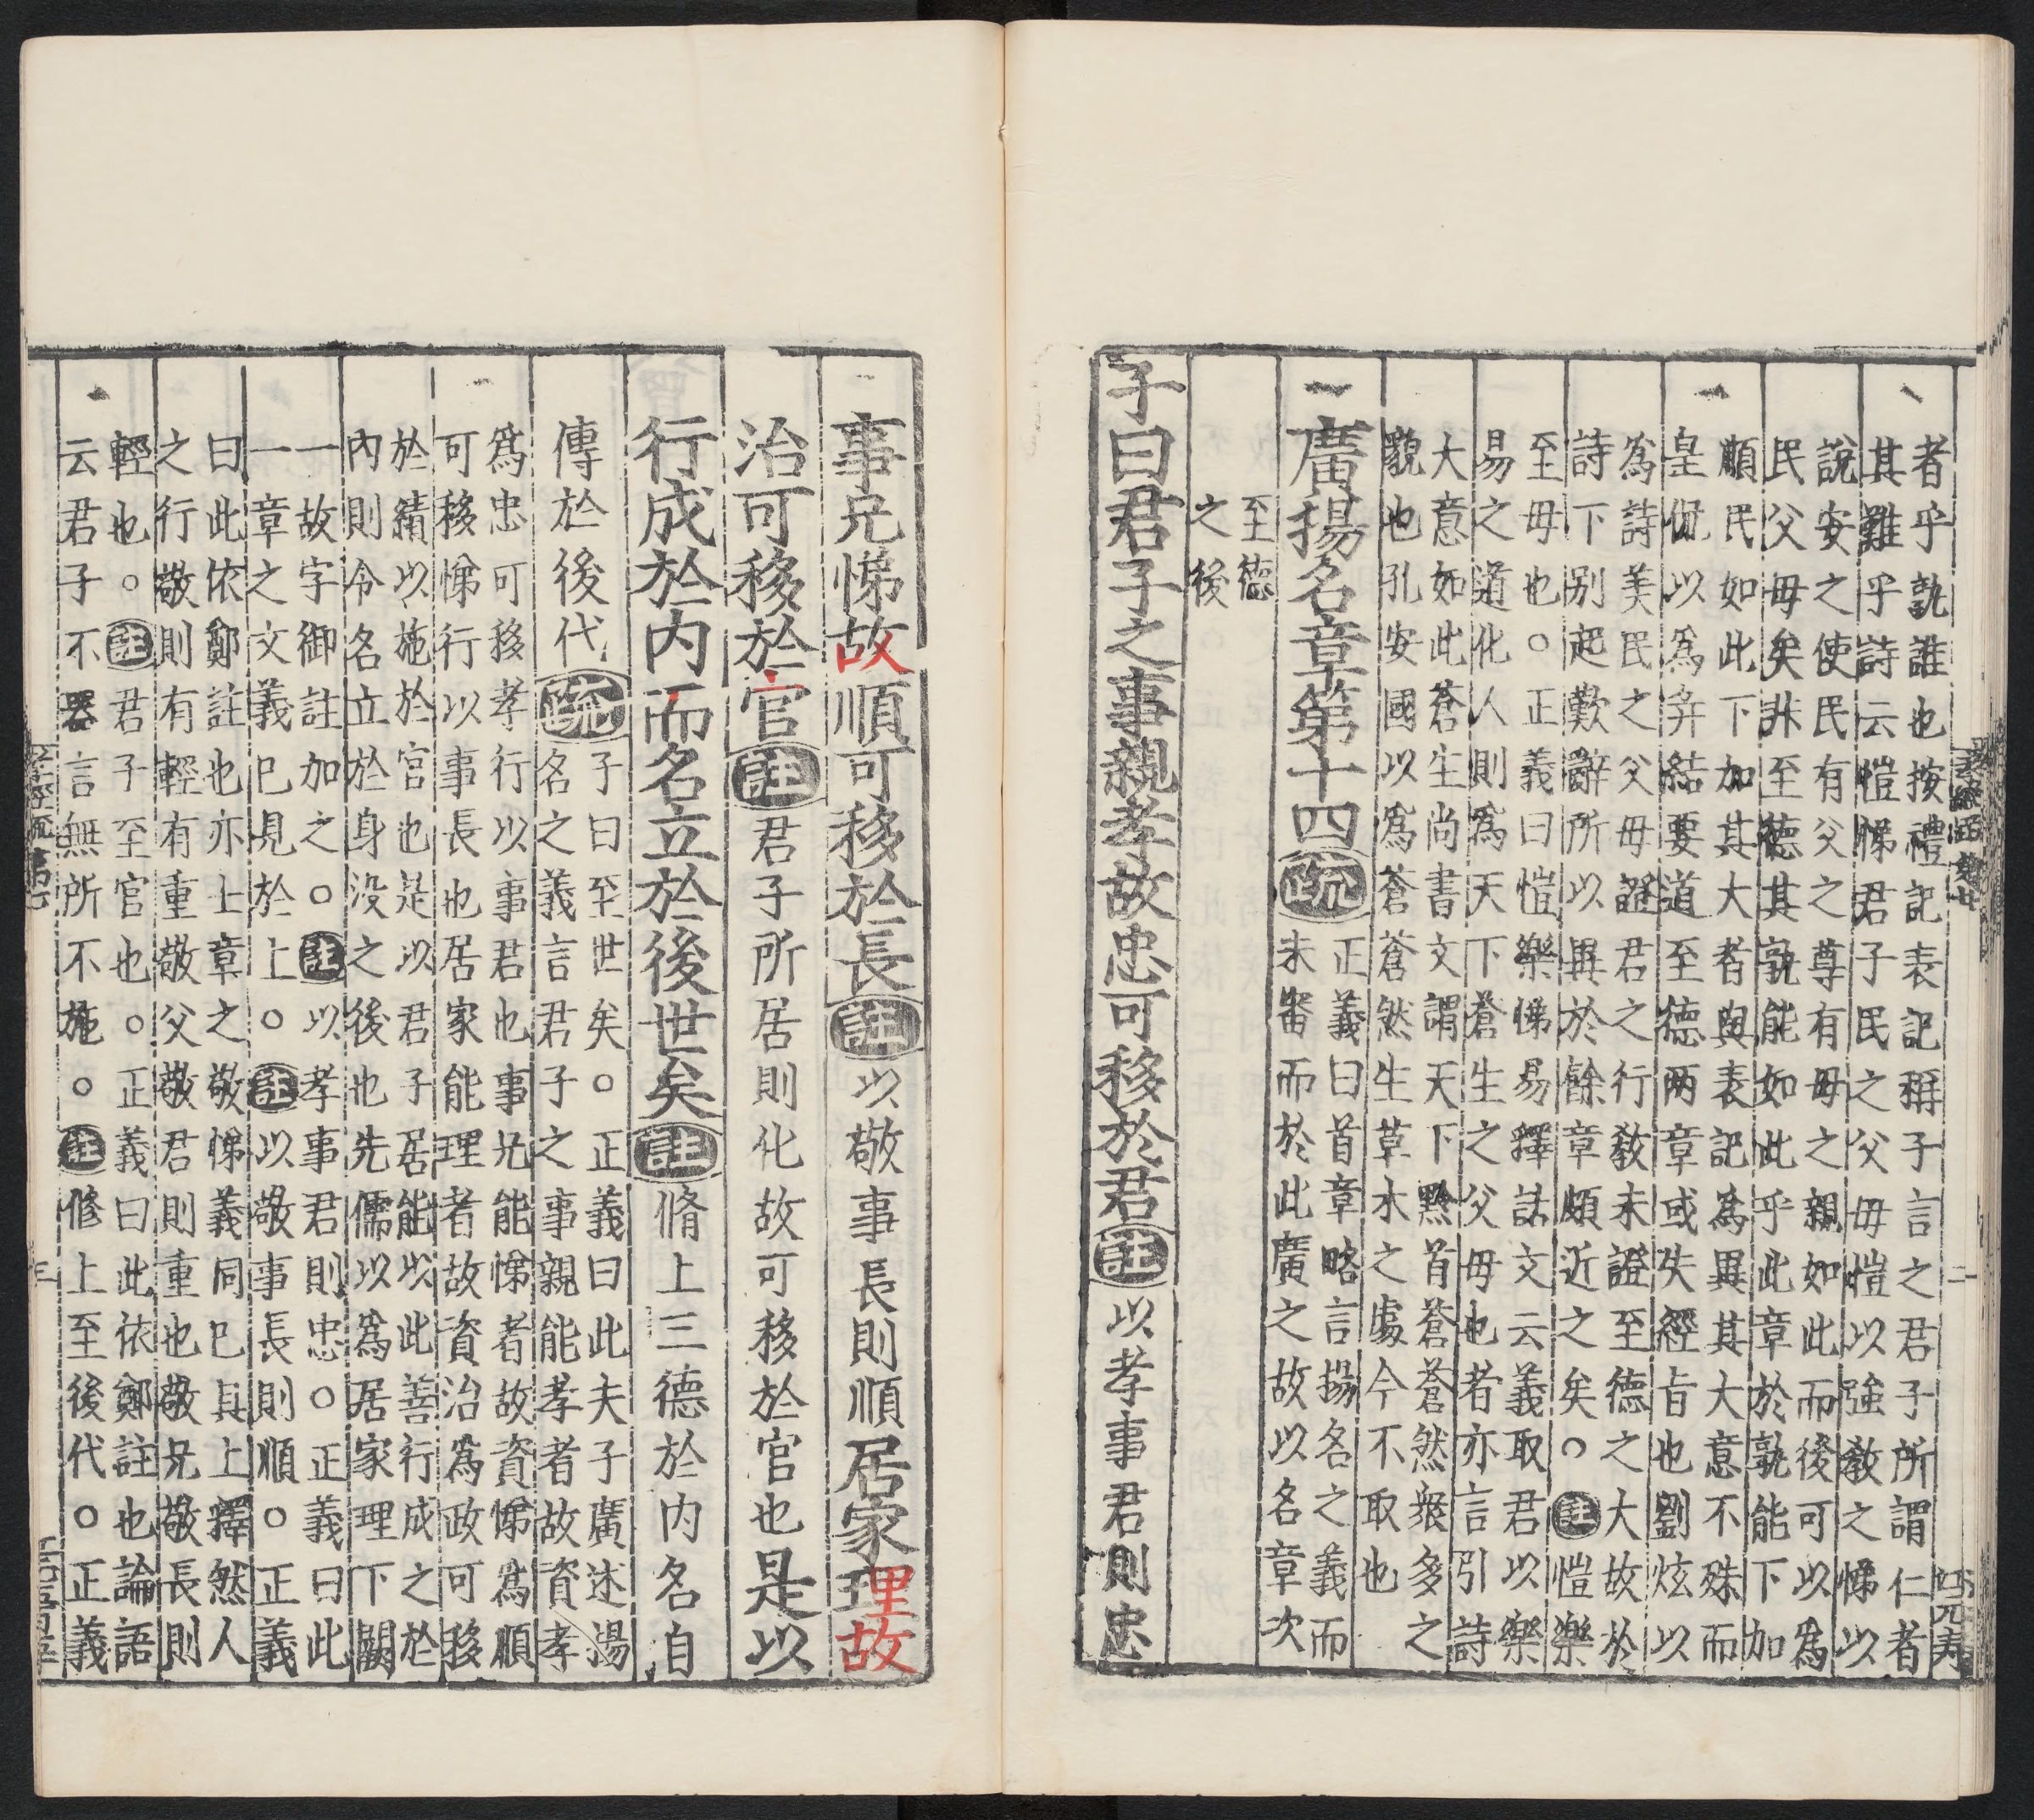 者乎孰誰也按禮記表記稱子言之君子所謂仁者
其難乎詩云愷悌君子民之父母愷以強敎之悌以
說安之使民有父之尊有母之親如此而後可以爲
民父母矣非至德其孰能如此乎此章於孰能下加
順民如此下加其大者與表記爲異其大意不殊而
皇侃以爲并結要道至德两章或失經旨也劉炫以
爲詩美民之父母證君之行敎未證至德之大故於
詩下别起歎辭所以異於餘章頗近之矣○註愷樂
至母也○正義曰愷樂悌易釋詁文云義取君以樂
易之道化人則爲天下蒼生之父母也者亦言引詩
大意如此蒼生尚書文謂天下黔首蒼蒼然衆多之
貌也孔安國以爲蒼蒼然生草木之處今不取也
廣揚名章第十四疏
正義曰首章略言揚名之義而
未審而於此廣之故以名章次
至德
之後
子曰君子之事親孝故忠可移於君註以孝事君則忠
事兄悌故順可移於長註以敬事長則順居家理故
治可移於官註君子所居則化故可移於官也是以
行成於内而名立於後世矣註脩上三德於内名自
傳於後代疏
子曰至世矣○正義曰此夫子廣述揚
名之義言君子之事親能孝者故資孝
爲忠可移孝行以事君也事兄能悌者故資悌爲順
可移悌行以事長也居家能理者故資治爲政可移
於績以施於官也是以君子居能以此善行成之於
內則令名立於身没之後也先儒以爲居家理下闕
一故字御註加之○註以孝事君則忠○正義曰此
一章之文義已見於上○註以敬事長則順○正義
曰此依鄭註也亦上章之敬悌義同已具上釋然人
之行敬則有輕有重敬父敬君則重也敬兄敬長則
輕也○註君子至官也○正義曰此依鄭註也論語
云君子不器言無所不施○註修上至後代○正義